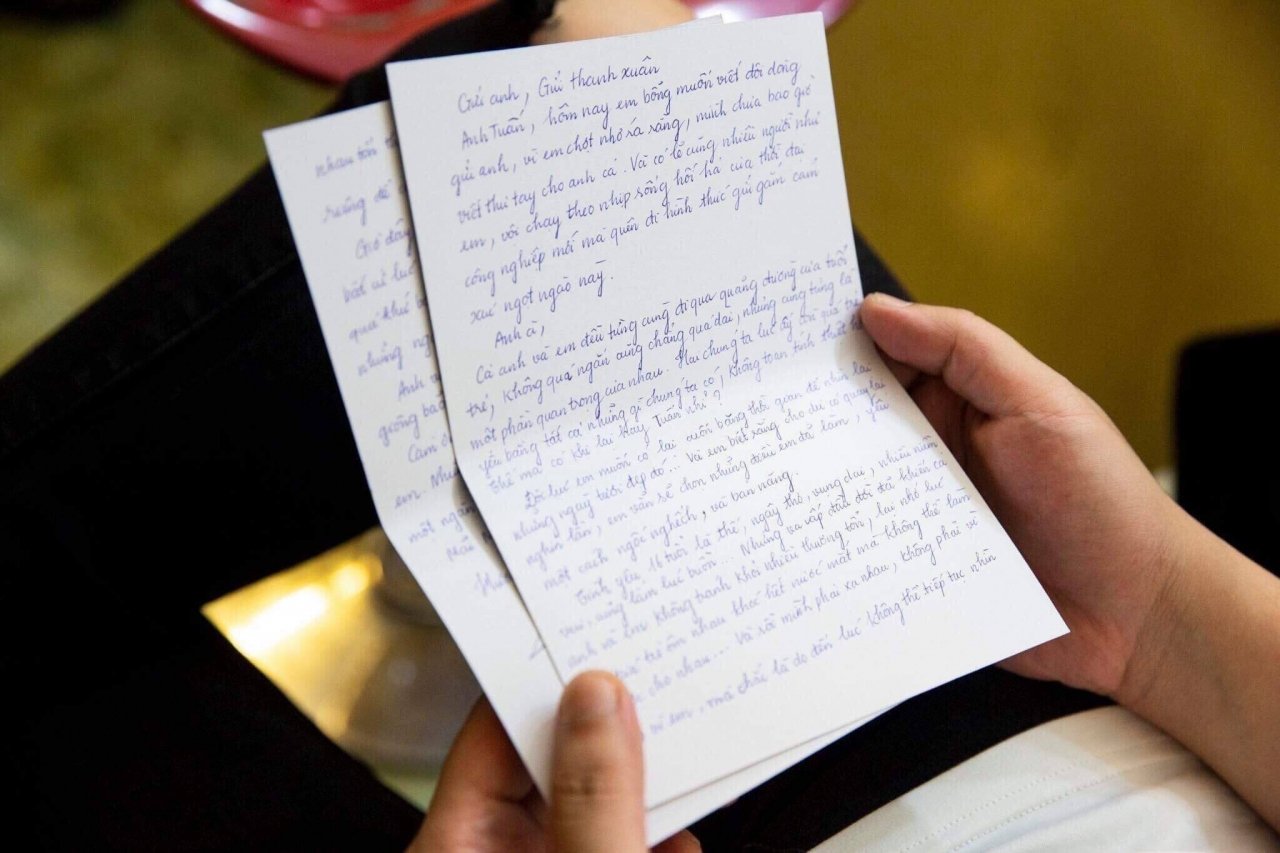 Gửi anh, Gửi thanh xuân
Anh Tuấn, hôm nay em bỗng muốn viết đôi dòng
gửi anh, vì em chợt nhớ ra rằng, mình chưa bao giờ
viết thư tay cho anh cả. Và có lẽ cũng nhiều người như
em, vội chạy theo nhịp sống hối hả của thời đại
công nghiệp mới mà quên đi hình thức gửi gắm cảm
xúc ngọt ngào này.
Anh à,
Cả anh và em đều từng cùng đi qua quãng đường của tuổi
trẻ, không quá ngắn cũng chẳng quá dài, nhưng cũng từng là
một phần quan trọng của nhau. Hai chúng ta lúc ấy chỉ quá trẻ
yêu bằng tất cả những gì chúng ta có, không toan tính thiệt
thế mà có khi lại hay Tuấn nhỉ?
Đôi lúc em muốn có lại cuốn băng thời gian để nhìn lại
những ngày tươi đẹp đó... Và em biết rằng cho dù có quay lại
nghìn lần, em vẫn sẽ chọn những điều em đã làm, yêu
một cách ngốc nghếch, và bản năng.
Tình yêu 16 tuổi là thế, ngây thơ, vụng dại, nhiều niềm
vui, cũng lắm lúc buồn... Những va vấp đầu đời đã khiến cả
anh và em không tránh khỏi nhiều thương tổn, lại nhớ lúc
trẻ ôm nhau khóc hết nước mắt mà không thể làm
cho nhau... Và rồi mình phải xa nhau, không phải vì
vì em, mà chắc là do đến lúc không thể tiếp tục nhìn
nhau
Anh
em.
một